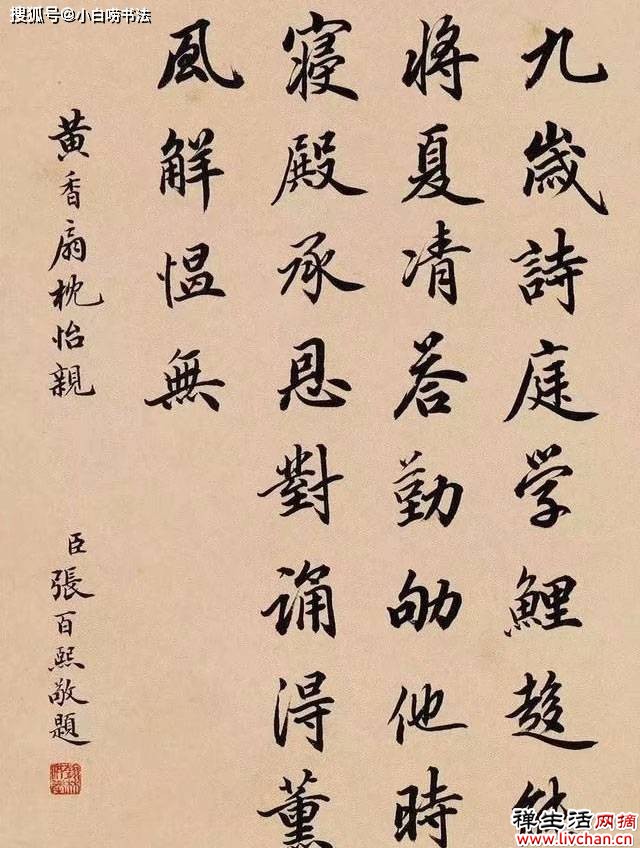 搜狐号@小白唠书法
九歲詩庭学鯉趨能
將夏凊荅勤劬他時
寢殿承恩對誦得薰
風解愠無
黄香扇枕怡親
臣張百熙敬題
禅生活网摘
www.livchan.cn